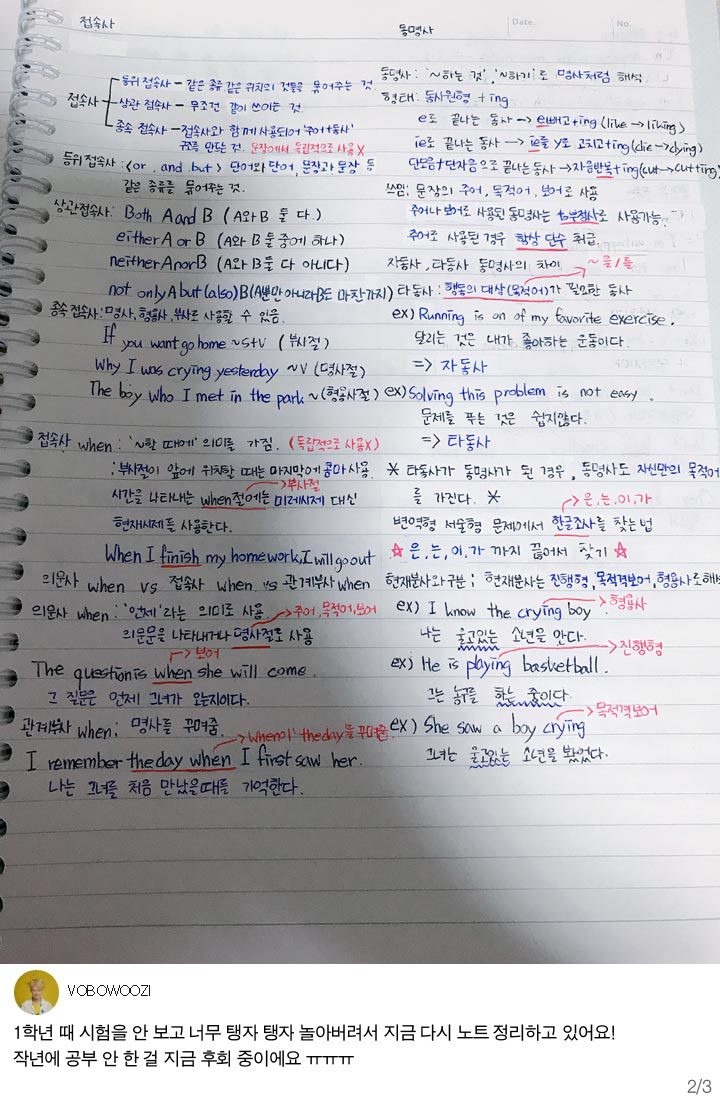 접속사
동명사
Date.
No.
접속사
등위 접속사 - 같은 종류 같은 위치의 것들을 묶어주는 것.
상관 접속사 - 무조건 같이 쓰이는 것.
종속 접속사 - 접속사와 함께 사용되어 '주어+동사'
귀를 만드는 것. 문장에서 독립적으로 사용X
등위 접속사: <or, and, but> 단어와 단어, 문장과 문장 등
같은 종류를 묶어주는 것.
상관접속사: Both A and B (A와 B 둘 다.)
either A or B (A와 B 둘 중에 하나)
neither A nor B (A와 B 둘 다 아니다)
not only A but (also) B (A뿐만 아니라 B도 마찬가지)
종속 접속사: 명사, 형용사, 부사로 사용할 수 있음.
If you want go home ~S+V (부사절)
Why I was crying yesterday ~V (명사절)
The boy who I met in the park ~ (형용사절)
접속사 when: '~할 때에' 의미를 가짐. (독립적으로 사용X)
: 부사절이 앞에 위치할 때는 마지막에 콤마 사용.
부사절
시간을 나타내는 when절에는 미래시제 대신
현재시제를 사용한다.
When I finish my homework, I will go out
의문사 when vs 접속사 when vs 관계부사 when
의문사 when: '언제'라는 의미로 사용
주어, 목적어, 보어
의문문을 나타내거나 명사절로 사용
보어
The question is when she will come.
그 질문은 언제 그녀가 오는지이다.
관계부사 when: 명사를 꾸며줌.
when이 the day를 꾸며줌
I remember the day when I first saw her.
나는 그녀를 처음 만났을 때를 기억한다.
동명사: '~하는 것', '~하기'로 명사처럼 해석.
형태: 동사원형 + ing
e로 끝나는 동사 → e빼고+ing (like → liking)
ie로 끝나는 동사 → ie를 y로 고치고+ing (die → dying)
단모음+단자음으로 끝나는 동사 → 자음반복+ing (cut → cut+ting)
쓰임: 문장의 주어, 목적어, 보어로 사용
주어나 보어로 사용된 동명사는 to부정사로 사용가능.
주어로 사용된 경우 항상 단수 취급.
자동사, 타동사 동명사의 차이
~을/를
타동사: 행동의 대상(목적어)가 필요한 동사
ex) Running is on of my favorite exercise.
달리는 것은 내가 좋아하는 운동이다.
=> 자동사
ex) Solving this problem is not easy.
문제를 푸는 것은 쉽지않다.
=> 타동사
* 타동사가 동명사가 된 경우, 동명사도 자신만의 목적어
를 가진다. *
은, 는, 이, 가
번역형 서술형 문제에서 한글조사를 찾는법
☆ 은, 는, 이, 가 까지 끊어서 찾기 ☆
현재분사와 구분: 현재분사는 진행형, 목적격보어, 형용사로 해석
ex) I know the crying boy
형용사
나는 울고있는 소년을 안다.
진행형
ex) He is playing basketball.
그는 농구를 하는 중이다.
목적격보어
ex) She saw a boy crying
그녀는 울고있는 소년을 봤었다.
VOBOWOOZI
1학년 때 시험을 안 보고 너무 탱자 탱자 놀아버려서 지금 다시 노트 정리하고 있어요!
작년에 공부 안 한 걸 지금 후회 중이에요 ㅠㅠㅠ
2/3